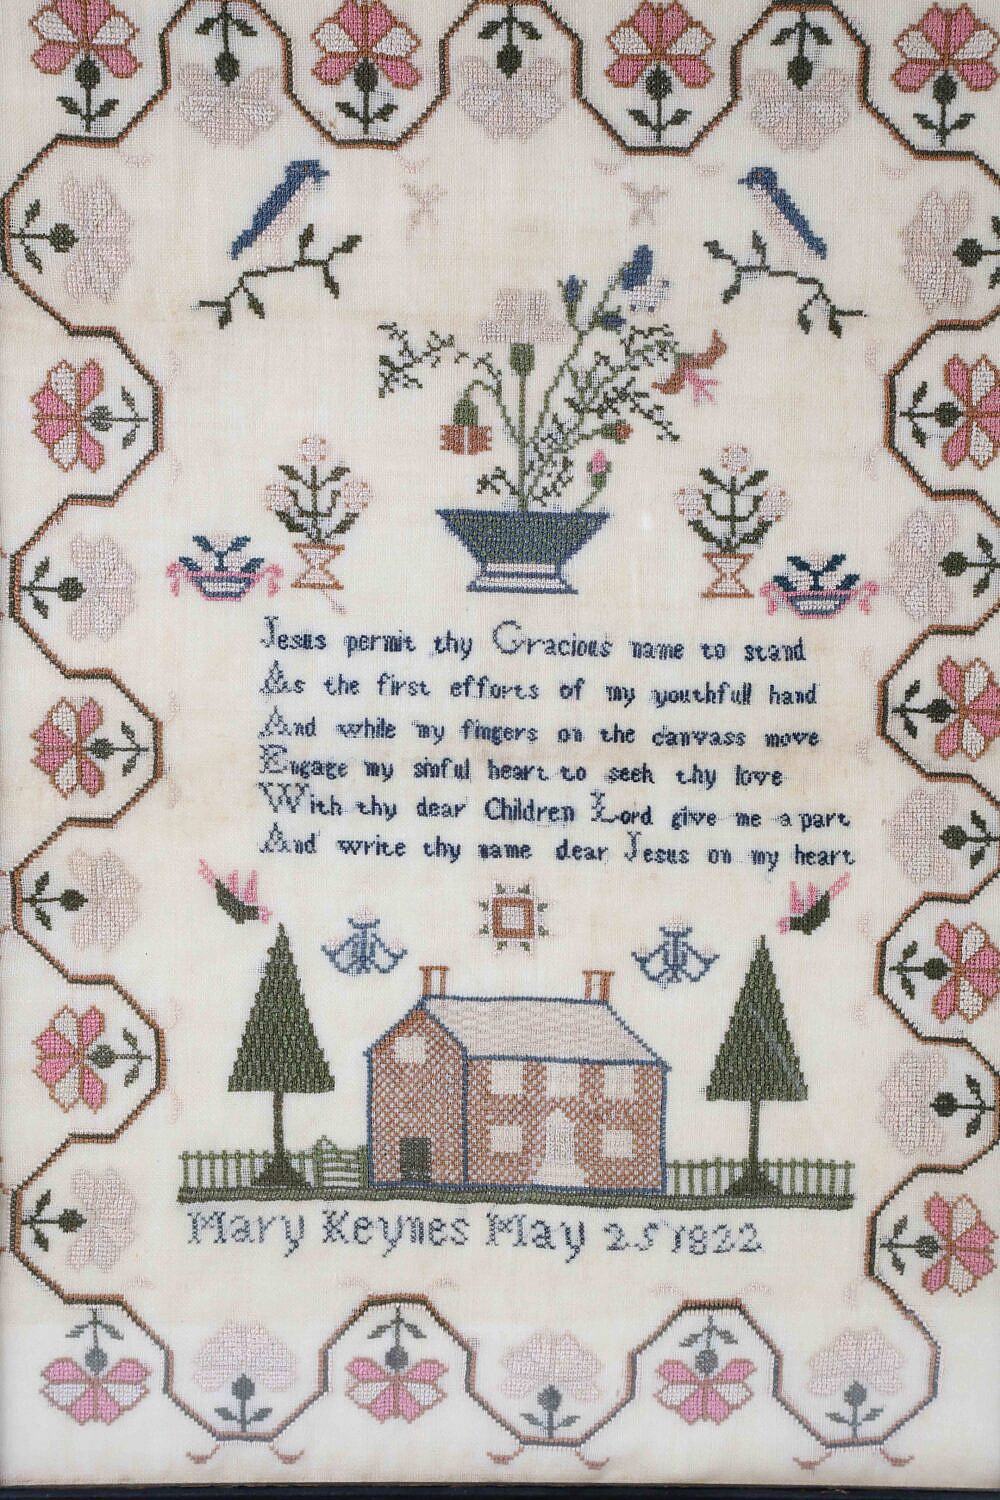 Jesus permit thy Gracious name to stand
As the first efforts of my youthfull hand
And while my fingers on the canvass move
Engage my sinful heart to seek thy love
With thy dear Children Lord give me a part
And write thy name dear Jesus on my heart
Mary Keynes May 25 1822